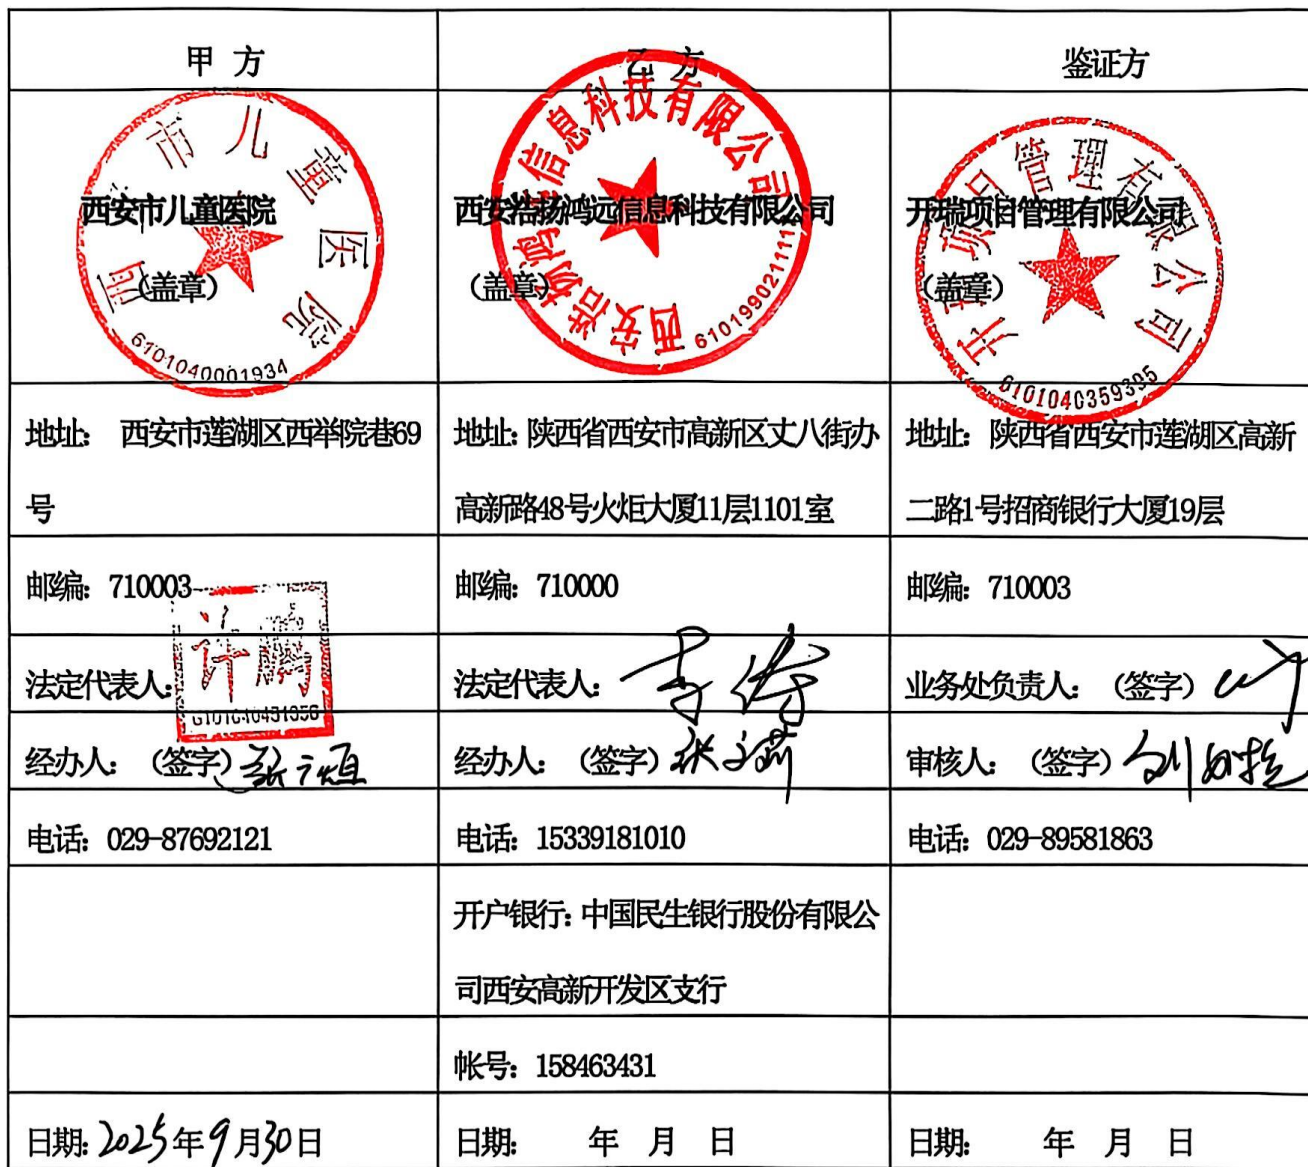 甲 方
乙 方
鉴证方
西安市儿童医院
(盖章)
西安市儿童医院
6101040001934
西安浩扬鸿远信息科技有限公司
(盖章)
西安浩扬鸿远信息科技有限公司
开瑞项目管理有限公司
(盖章)
开瑞项目管理有限公司
6101040359395
地址: 西安市莲湖区西举院巷69
号
地址: 陕西省西安市高新区丈八街办
高新路48号火炬大厦11层1101室
地址: 陕西省西安市莲湖区高新
二路1号招商银行大厦19层
邮编: 710003
邮编: 710000
邮编: 710003
法定代表人:
许鹏
法定代表人:
业务处负责人: (签字)
经办人: (签字)
经办人: (签字)
审核人: (签字)
电话: 029-87692121
电话: 15339181010
电话: 029-89581863
开户银行: 中国民生银行股份有限公
司西安高新开发区支行
帐号: 158463431
日期: 2025年9月30日
日期: 年 月 日
日期: 年 月 日